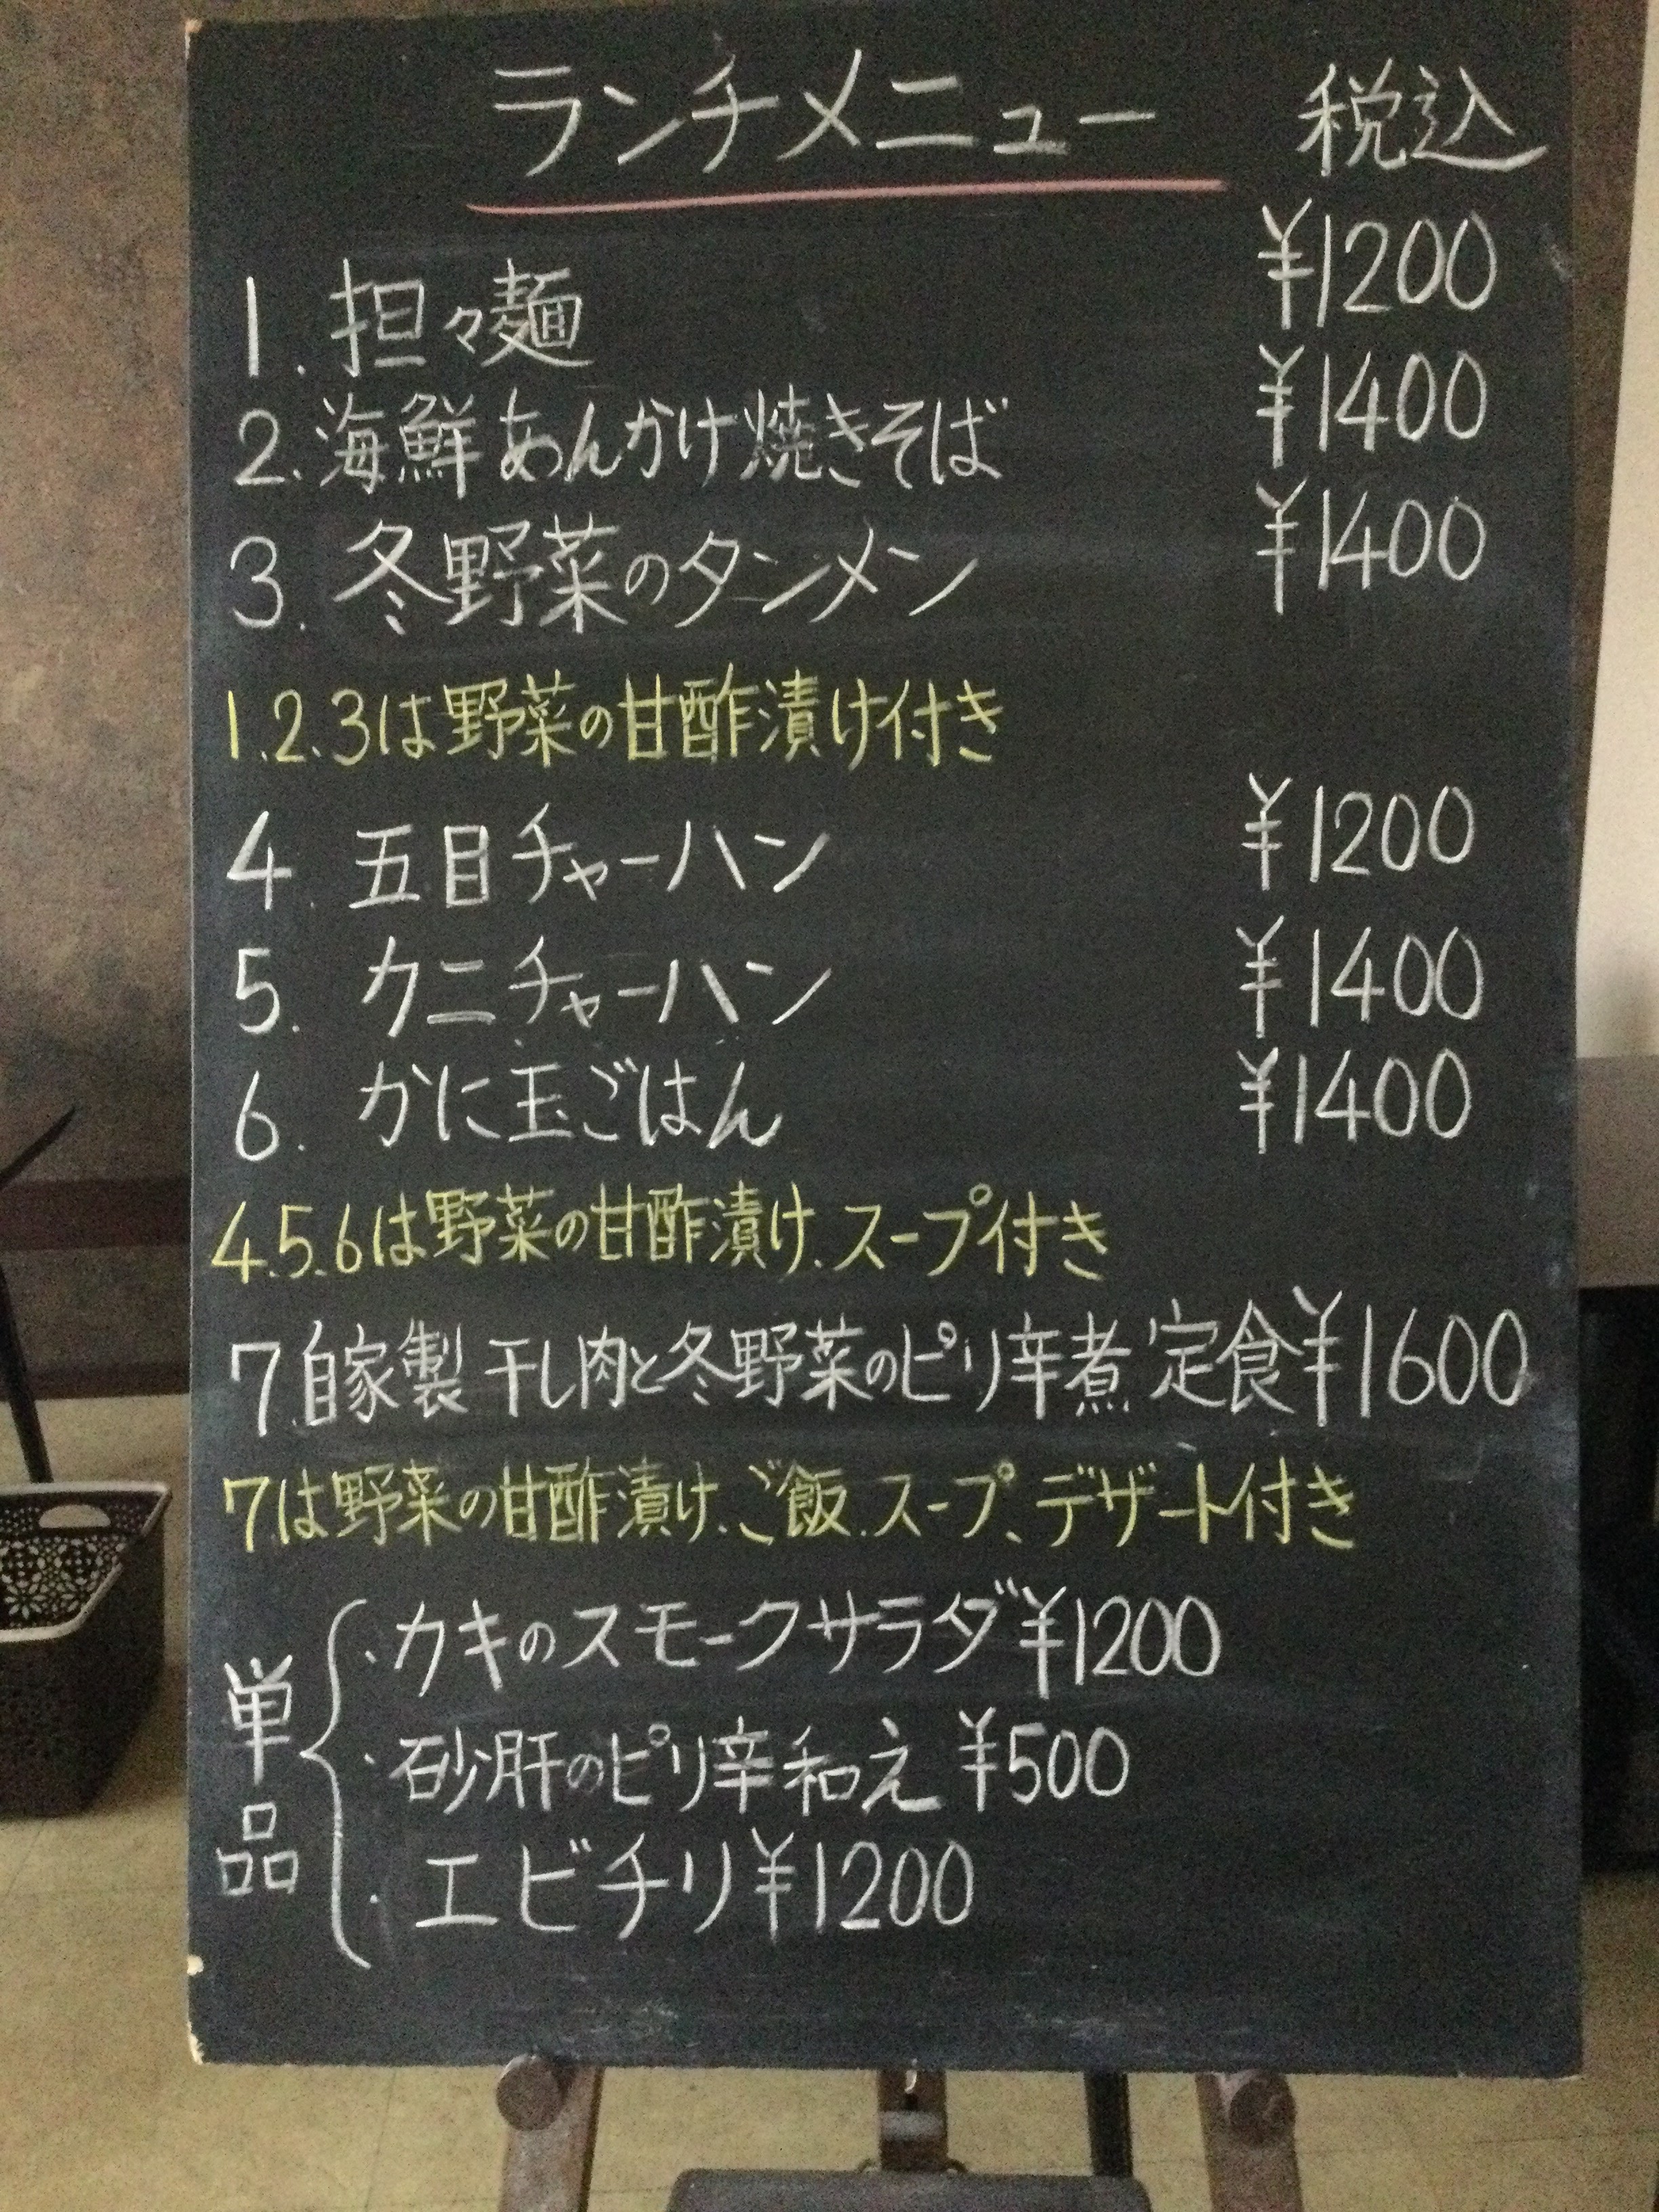 ランチメニュー 税込
1. 担々麺 ¥1200
2. 海鮮あんかけ焼きそば ¥1400
3. 冬野菜のタンメン ¥1400
1.2.3は野菜の甘酢漬け付き
4. 五目チャーハン ¥1200
5. クニチャーハン ¥1400
6. かに玉ごはん ¥1400
4.5.6は野菜の甘酢漬け、スープ付き
7. 自家製干し肉と冬野菜のピリ辛煮 定食 ¥1600
7.は野菜の甘酢漬け、ご飯、スープ、デザート付き
単品
・カキのスモークサラダ ¥1200
・砂肝のピリ辛和え ¥500
・エビチリ ¥1200